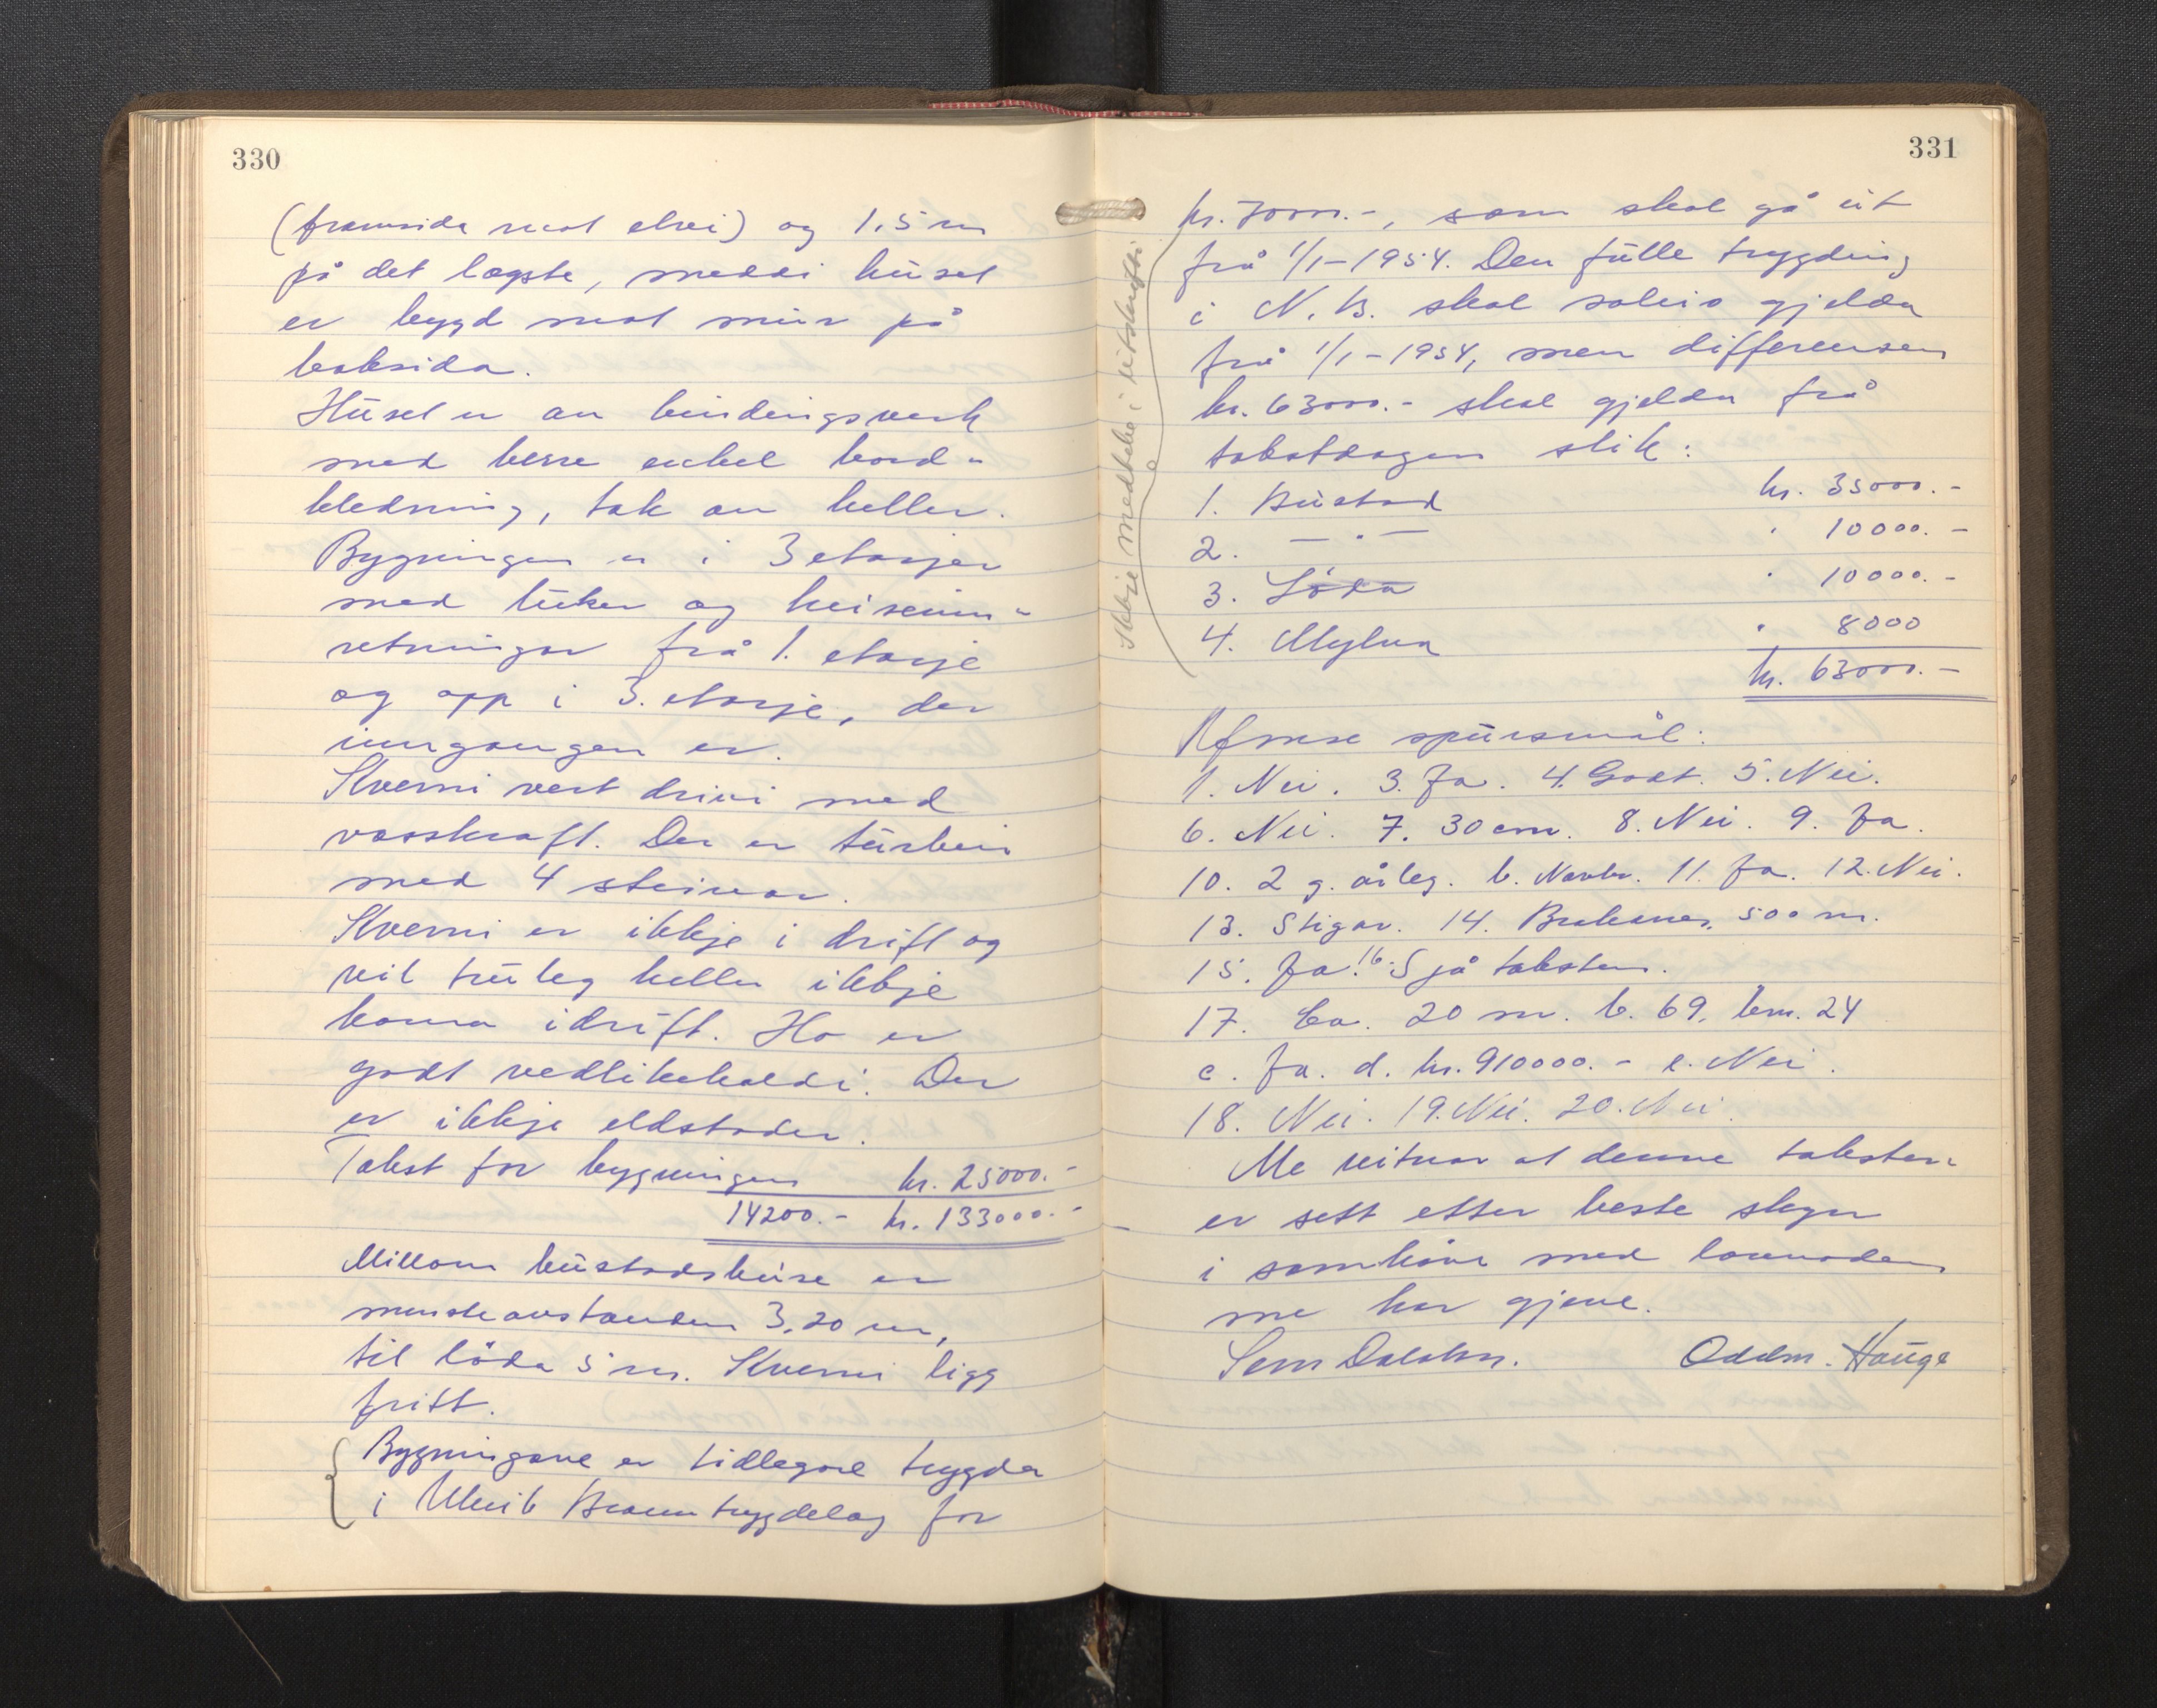 330
(framsida mot elvi) og 1,5 m
på det lægste, medan huset
er bygd mot mur på
baksida.
Huset er av bindingsverk
med berre enkel bord-
kledning, tak av heller.
Bygningen er i 3 etasjer
med luker og heiseinn-
retningar frå 1. etasje
og opp i 3. etasje, der
inngangen er.
Kverni vert drivi med
vasskraft. Der er turbin
med 4 steinar.
Kverni er ikkje i drift og
vil truleg heller ikkje
koma i drift. Ho er
godt vedlikehaldi. Der
er ikkje eldstader.
Takst for bygningen kr. 25000.-
14200.- kr. 133000.-
Millom bustadshusa er
minsteavstanden 3,20 m,
til löda 5 m. Kverni ligg
fritt.
Bygningane er tidlegare trygda
i Ulvik Branntrygdelag for
331
kr. 70000.-, som skal gå ut
frå 1/1-1954. Den fulle trygding
i N. B. skal soleis gjelda
frå 1/1-1954, men differensen
kr. 63000.- skal gjelda frå
takstdagen slik:
1. Bustad kr. 35000.-
2. — " — " 10000.-
3. Löda " 10000.-
4. Mylna " 8000
kr. 63000.-
Ikkje medteke i utskrifti
Ymse spursmål:
1. Nei. 3. Ja. 4. Godt. 5. Nei.
6. Nei. 7. 30 cm. 8. Nei. 9. Ja.
10. 2 g. årleg. b. Navbr. 11. Ja. 12. Nei.
13. Stigar. 14. Brakanes, 500 m.
15. Ja. 16. Sjå taksten.
17. Ca. 20 m. b. 69, bm. 24
c. Ja. d. kr. 910000.- e. Nei.
18. Nei. 19. Nei. 20. Nei.
Me vitnar at denne taksten
er sett etter beste skyn
i samhöve med lovnaden
me har gjeve.
Oddm. Hauge